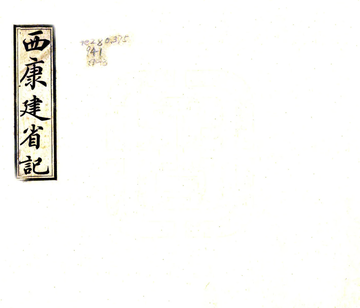 西康建省記
41